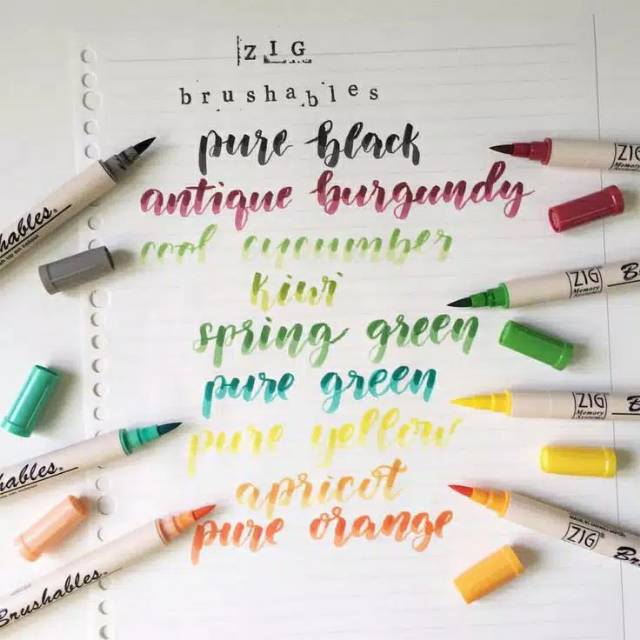 ZIG
brushables
pure black
antique burgundy
cool cucumber
kiwi
spring green
pure green
pure yellow
apricot
pure orange
ZIG
Memory
ZIG
Memory
B
ZIG
Memory
B
ZIG
Br
hables.
hables.
Brushables.